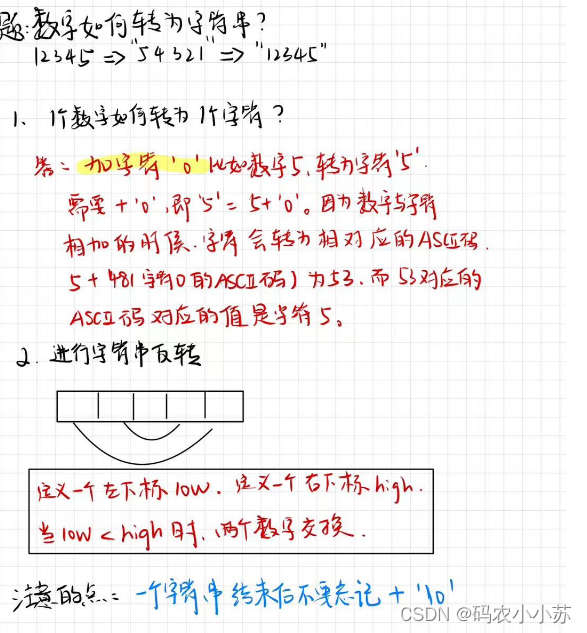 题:数字如何转为字符串?
12345 => "54321" => "12345"
1、1个数字如何转为1个字符?
答:加字符'0'比如数字5,转为字符'5'.
需要+'0',即'5'=5+'0'。因为数字与字符
相加的时候.字符会转为相对应的ASCII码.
5+48(字符0的ASCII码)为53.而53对应的
ASCII码对应的值是字符5。
2.进行字符串反转
定义一个左下标low.定义一个右下标high.
当low<high时,两个数字交换.
注意的点:一个字符串结束后不要忘记+'\0'
CSDN @码农小小苏